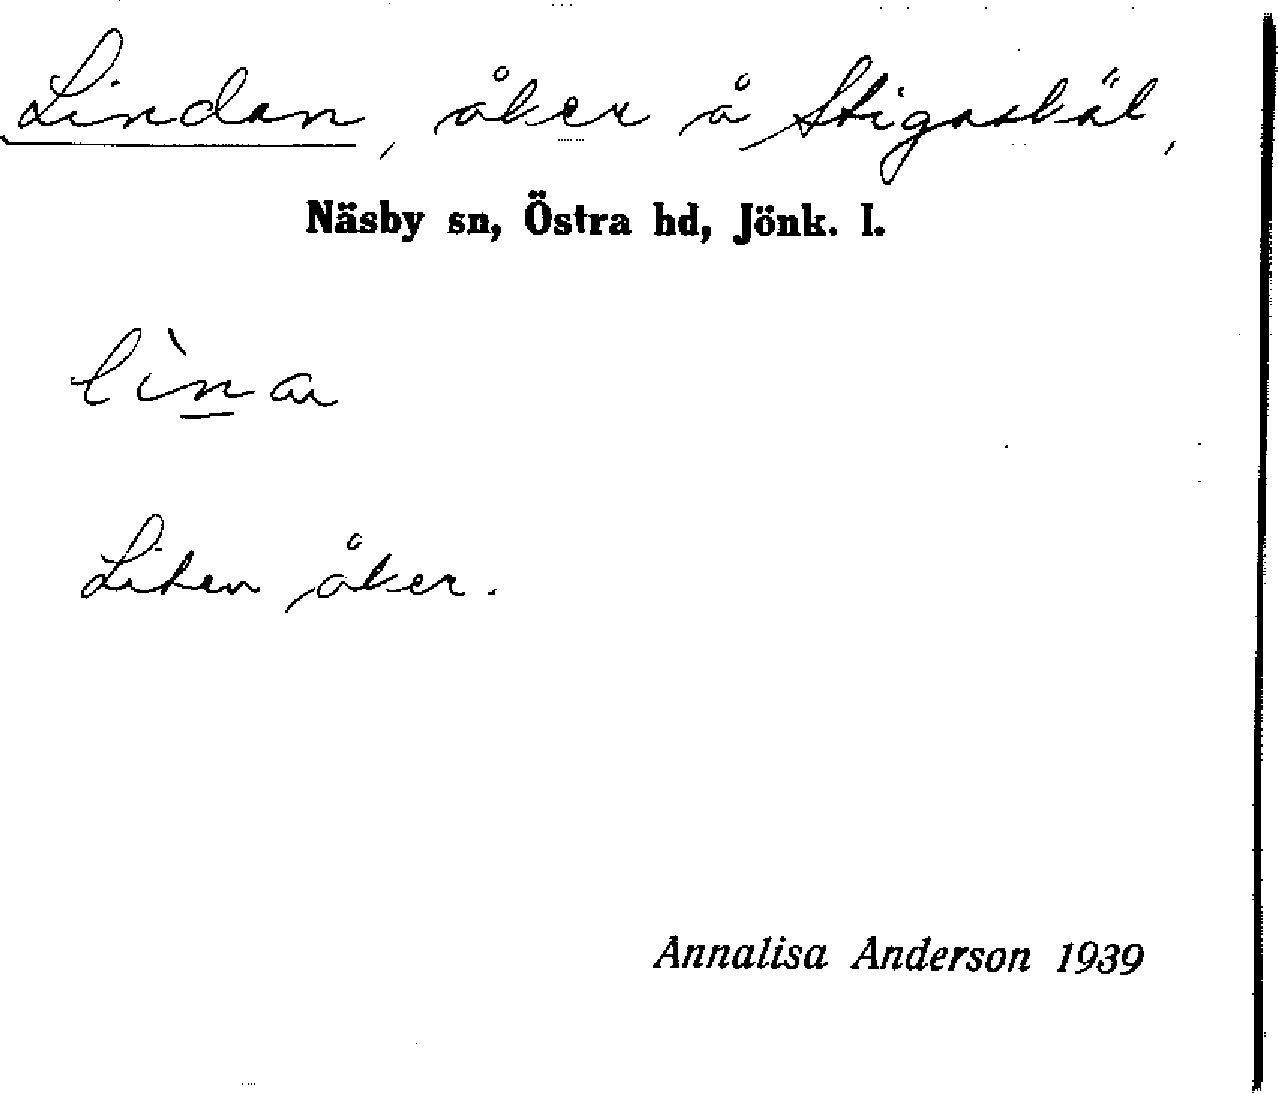 Lindan, åker å Stigaskäl,
Näsby sn, Östra hd, Jönk. l.
lìnan
Liten åker.
Annalisa Anderson 1939